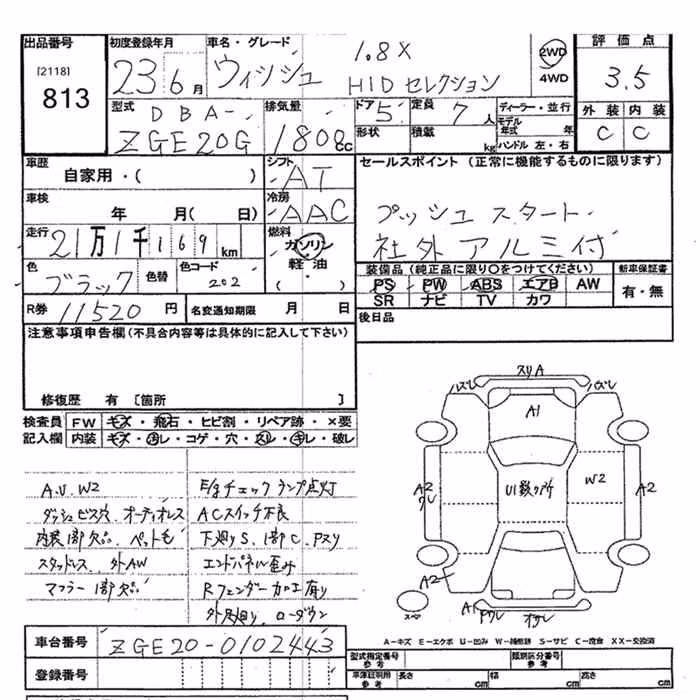 出品番号 初度登録年月 車名・グレード 評価点
[2118] 813
23 6月 ウィッシュ 1.8X HIDセレクション
2WD
4WD
3.5
型式 DBA- 排気量 ドア 5 定員 7人 ディーラー・並行 外装 内装
ZGE20G 1800cc 形状 積載 kg モデル年式 年 C C
ハンドル 左・右
車歴 シフト セールスポイント (正常に機能するものに限ります)
自家用・( ) AT
車検 冷房
年 月( 日) AAC プッシュスタート
走行 燃料 社外アルミ付
21万1千169km ガソリン
軽油
( )
色 ブラック 色替 色コード 202
装備品 (純正品に限り○をつけてください) 新車保証書
PS PW ABS エアB AW 有・無
SR ナビ TV カワ
R券 11520円 名変通知期限 月 日 後日品
注意事項申告欄(不具合内容等は具体的に記入して下さい)
修復歴 有 [箇所 ]
検査員 FW キズ・飛石・ヒビ割・リペア跡・×要
記入欄 内装 キズ・汚レ・コゲ・穴・スレ・キレ・破レ
A.U.W2 E/gチェックランプ点灯
ダッシュビス穴.オーディオレス ACスイッチ不良
内装1部欠品.ペット毛 下廻りS.1部C.Pスリ
スタッドレス.外AW エンドパネル歪み
マフラー1部欠品 Rフェンダー加工有り
外足廻り.ローダウン
スリA
ハズレ ハズレ
A1
A2 ワレ U1数ヶ所 W2 A2
A2
スペア
A1 ワレ
A-キズ E-エクボ U-凹み W-補修跡 S-サビ C-腐食 XX-交換済
車台番号 ZGE20-0102443
登録番号
型式指定番号 参考 類別区分番号 参考
車庫証明用 参考 長さ cm 幅 cm 高さ cm